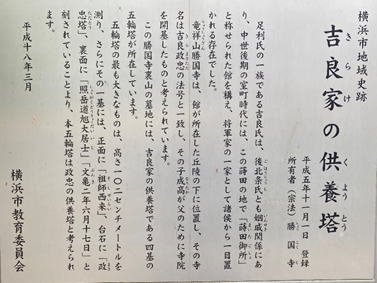 横浜市地域史跡
吉良家の供養塔
きらけ
くようとう
平成五年十一月一日 登録
所有者(宗法) 勝国寺
足利氏の一族である吉良氏は、後北条氏とも姻戚関係にあ
り、中世後期の室町時代には、この蒔田の地で「蒔田御所」
と称せられた館を構え、将軍家の一家として諸侯から一目置
かれる存在でした。
竜祥山勝国寺は、館が所在した丘陵の下に位置し、その寺
名は吉良政忠の法号と一致し、その子成高が父のために寺院
を開基したものと考えられています。
この勝国寺裏山の墓地には、吉良家の供養塔である四基の
五輪塔が所在しています。
五輪塔の最も大きなものは、高さ一〇二センチメートルを
測り、さらにその一基には、正面に「祖師西来」、台石に「政
忠塔」、裏面に「照岳道旭大居士」「文亀二年六月十七日」と
刻されていることより、本五輪塔は政忠の供養塔と考えられ
ます。
平成十八年三月
横浜市教育委員会